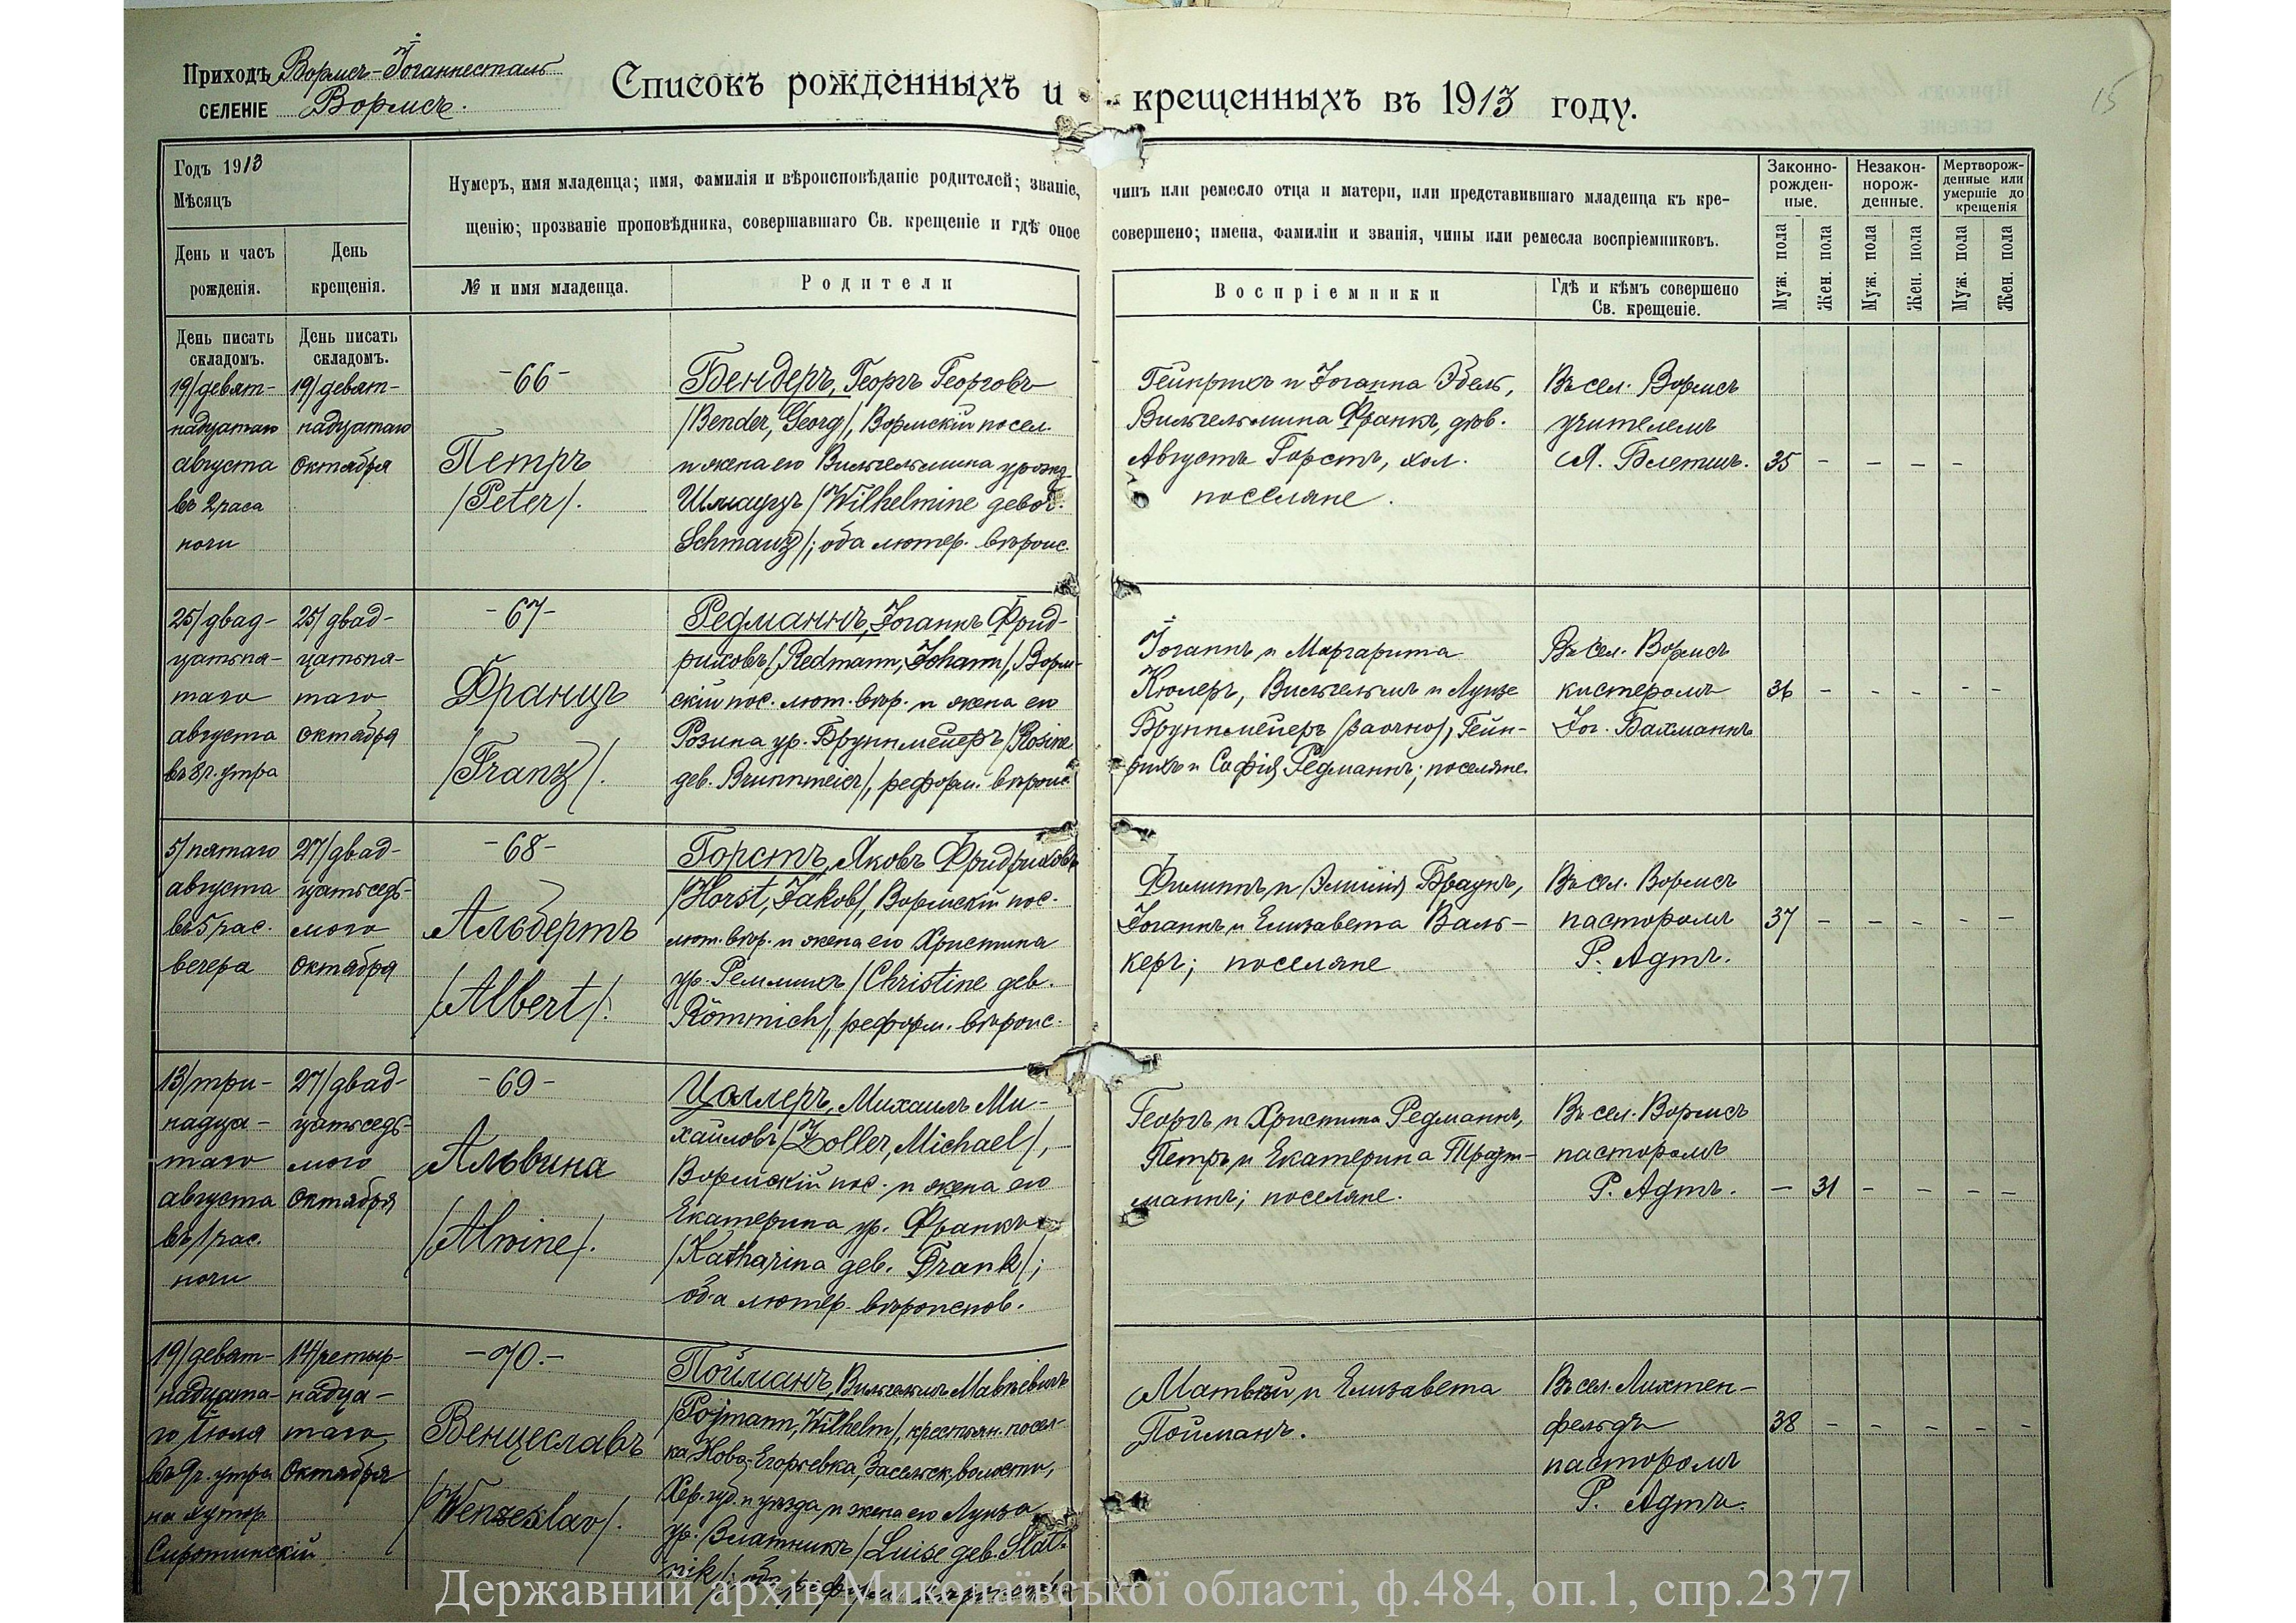 Приходъ Вормсъ-Іоганнесталь
СЕЛЕНІЕ Вормсъ.
Списокъ рожденныхъ и крещенныхъ въ 1913 году.
15
Годъ 1913
Мѣсяцъ
День и часъ рожденія.
День крещенія.
Нумеръ, имя младенца; имя, фамилія и вѣроисповѣданіе родителей; званіе, чинъ или ремесло отца и матери, или представившаго младенца къ кре-
щенію; прозваніе проповѣдника, совершавшаго Св. крещеніе и гдѣ оное совершено; имена, фамиліи и званія, чины или ремесла воспріемниковъ.
№ и имя младенца.
Родители
Воспріемники
Гдѣ и кѣмъ совершено
Св. крещеніе.
Законно-
рожден-
ные.
Незакон-
норож-
денные.
Мертворож-
денные или
умершіе до
крещенія
Муж. пола
Жен. пола
Муж. пола
Жен. пола
Муж. пола
Жен. пола
День писать
складомъ.
День писать
складомъ.
19/девят-
надцатаго
августа
въ 2 часа
ночи
19/девят-
надцатаго
октября
-66-
Петръ
/Peter/.
Бендеръ, Георгъ Георговъ
/Bender, Georg/, Вормскій посел.
и жена его Вильгельмина урожд.
Шмауцъ /Wilhelmine gebor.
Schmauz/; оба лютер. вѣроис.
Гейнрихъ и Іоганна Эбель,
Вильгельмина Франкъ, дѣв.
Августъ Горстъ, хол.
поселяне.
Въ сел. Вормсъ
учителемъ
А. Блетшъ.
35 - - - -
25/двад-
цатьпя-
таго
августа
въ 8 ч. утра
25/двад-
цатьпя-
таго
октября
-67-
Францъ
/Franz/.
Редманнъ, Іоганнъ Фрид-
риховъ /Redmann, Johann/, Ворм-
скій пос. лют. вѣр. и жена его
Розина ур. Бруннмейеръ /Rosine
geb. Brunnmeier/, реформ. вѣроис.
Іоганнъ и Маргарита
Кюлеръ, Вильгельмъ и Луизе
Бруннмейеръ (заочно), Гейн-
рихъ и Софія Редманнъ; поселяне.
Въ сел. Вормсъ
кистеромъ
Іог. Бахманнъ
36 - - - - -
5/пятаго
августа
въ 5 час.
вечера
27/двад-
цатьседь-
мого
октября
-68-
Альбертъ
/Albert/.
Горстъ, Яковъ Фридриховъ
/Horst, Jakob/, Вормскій пос.
лют. вѣр. и жена его Христина
ур. Реммихъ /Christine geb.
Römmich/, реформ. вѣроис.
Филиппъ и Эмилія Браунъ,
Іоганнъ и Елизавета Валь-
керъ; поселяне
Въ сел. Вормсъ
пасторомъ
Р. Адтъ.
37 - - - - -
13/три-
надца-
таго
августа
въ 1 час.
ночи
27/двад-
цатьседь-
мого
октября
-69-
Альвина
/Alwine/.
Цоллеръ, Михаилъ Ми-
хайловъ /Zoller, Michael/,
Вормскій пос. и жена его
Екатерина ур. Франкъ
/Katharina geb. Frank/;
оба лютер. вѣроисповѣ.
Георгъ и Христина Редманнъ,
Петръ и Екатерина Траут-
маннъ; поселяне.
Въ сел. Вормсъ
пасторомъ
Р. Адтъ.
- 31 - - - -
19/девят-
надцата-
го Іюля
въ 9 ч. утра
на хутор.
Сиротинскій
14/четыр-
надца-
таго
октября
-70.-
Венцеславъ
/Wenzeslav/.
Пойманъ, Вильгельмъ Матвѣевичъ
/Pojmann, Wilhelm/, крестьян. посел-
ка Ново-Егорьевка, Засельск. волости,
Хер. губ. и уѣзда и жена его Луиза
ур. Златникъ /Luise geb. Slat-
nik/; оба реформ. вѣроисп.
Матвѣй и Елизавета
Пойманъ.
Въ сел. Лихтен-
фельдъ
пасторомъ
Р. Адтъ.
38 - - - - -
Державний архів Миколаївської області, ф.484, оп.1, спр.2377